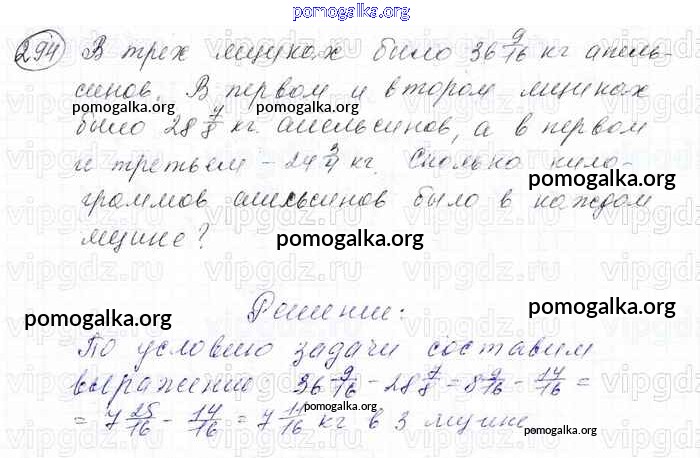 pomogalka.org
294 В трёх ящиках было 36 9/16 кг апель-
синов. В первом и втором ящиках
pomogalka.org pomogalka.org
было 28 7/8 кг. апельсинов, а в первом
и третьем - 24 3/4 кг. Сколько кило-
pomogalka.org
граммов апельсинов было в каждом
ящике?
pomogalka.org
vipgdz.ru vipgdz.ru vipgdz.ru
Решение:
pomogalka.org pomogalka.org
По условию задачи составим
выражение 36 9/16 - 28 7/8 = 8 9/16 - 14/16 =
pomogalka.org
= 7 25/16 - 14/16 = 7 11/16 кг в 3 ящике
pomogalka.org